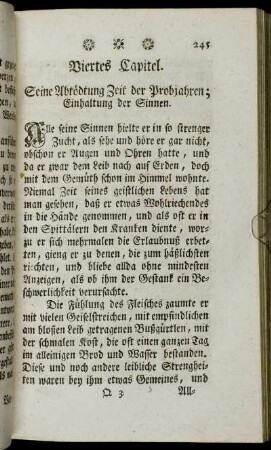 245
Viertes Capitel.
Seine Abtödtung Zeit der Probjahren;
Einhaltung der Sinnen.
Alle seine Sinnen hielte er in so strenger
Zucht, als sehe und höre er gar nicht,
obschon er Augen und Ohren hatte, und
da er zwar dem Leib nach auf Erden, doch
mit dem Gemüth schon im Himmel wohnte.
Niemal Zeit seines geistlichen Lebens hat
man gesehen, daß er etwas Wohlriechendes
in die Hände genommen, und als oft er in
den Spittälern den Kranken diente, wor-
zu er sich mehrmalen die Erlaubnuß erbet-
ten, gieng er zu denen, die zum häßlichsten
richten, und bliebe allda ohne mindesten
Anzeigen, als ob ihm der Gestank ein Be-
schwerlichkeit verursachte.
Die Fühlung des Fleisches zaumte er
mit vielen Geiselstreichen, mit empfindlichen
am blossen Leib getragenen Bußgürtlen, mit
der schmalen Kost, die oft einen ganzen Tag
im alleinigen Brod und Wasser bestanden.
Diese und noch andere leibliche Strenghei-
ten waren bey ihm etwas Gemeines, und
Q 3
All-